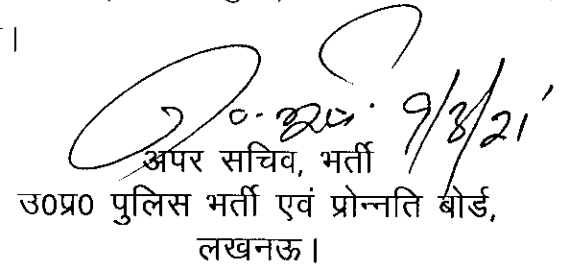 ।
9/3/21
अपर सचिव, भर्ती
उ0प्र0 पुलिस भर्ती एवं प्रोन्नति बोर्ड,
लखनऊ।